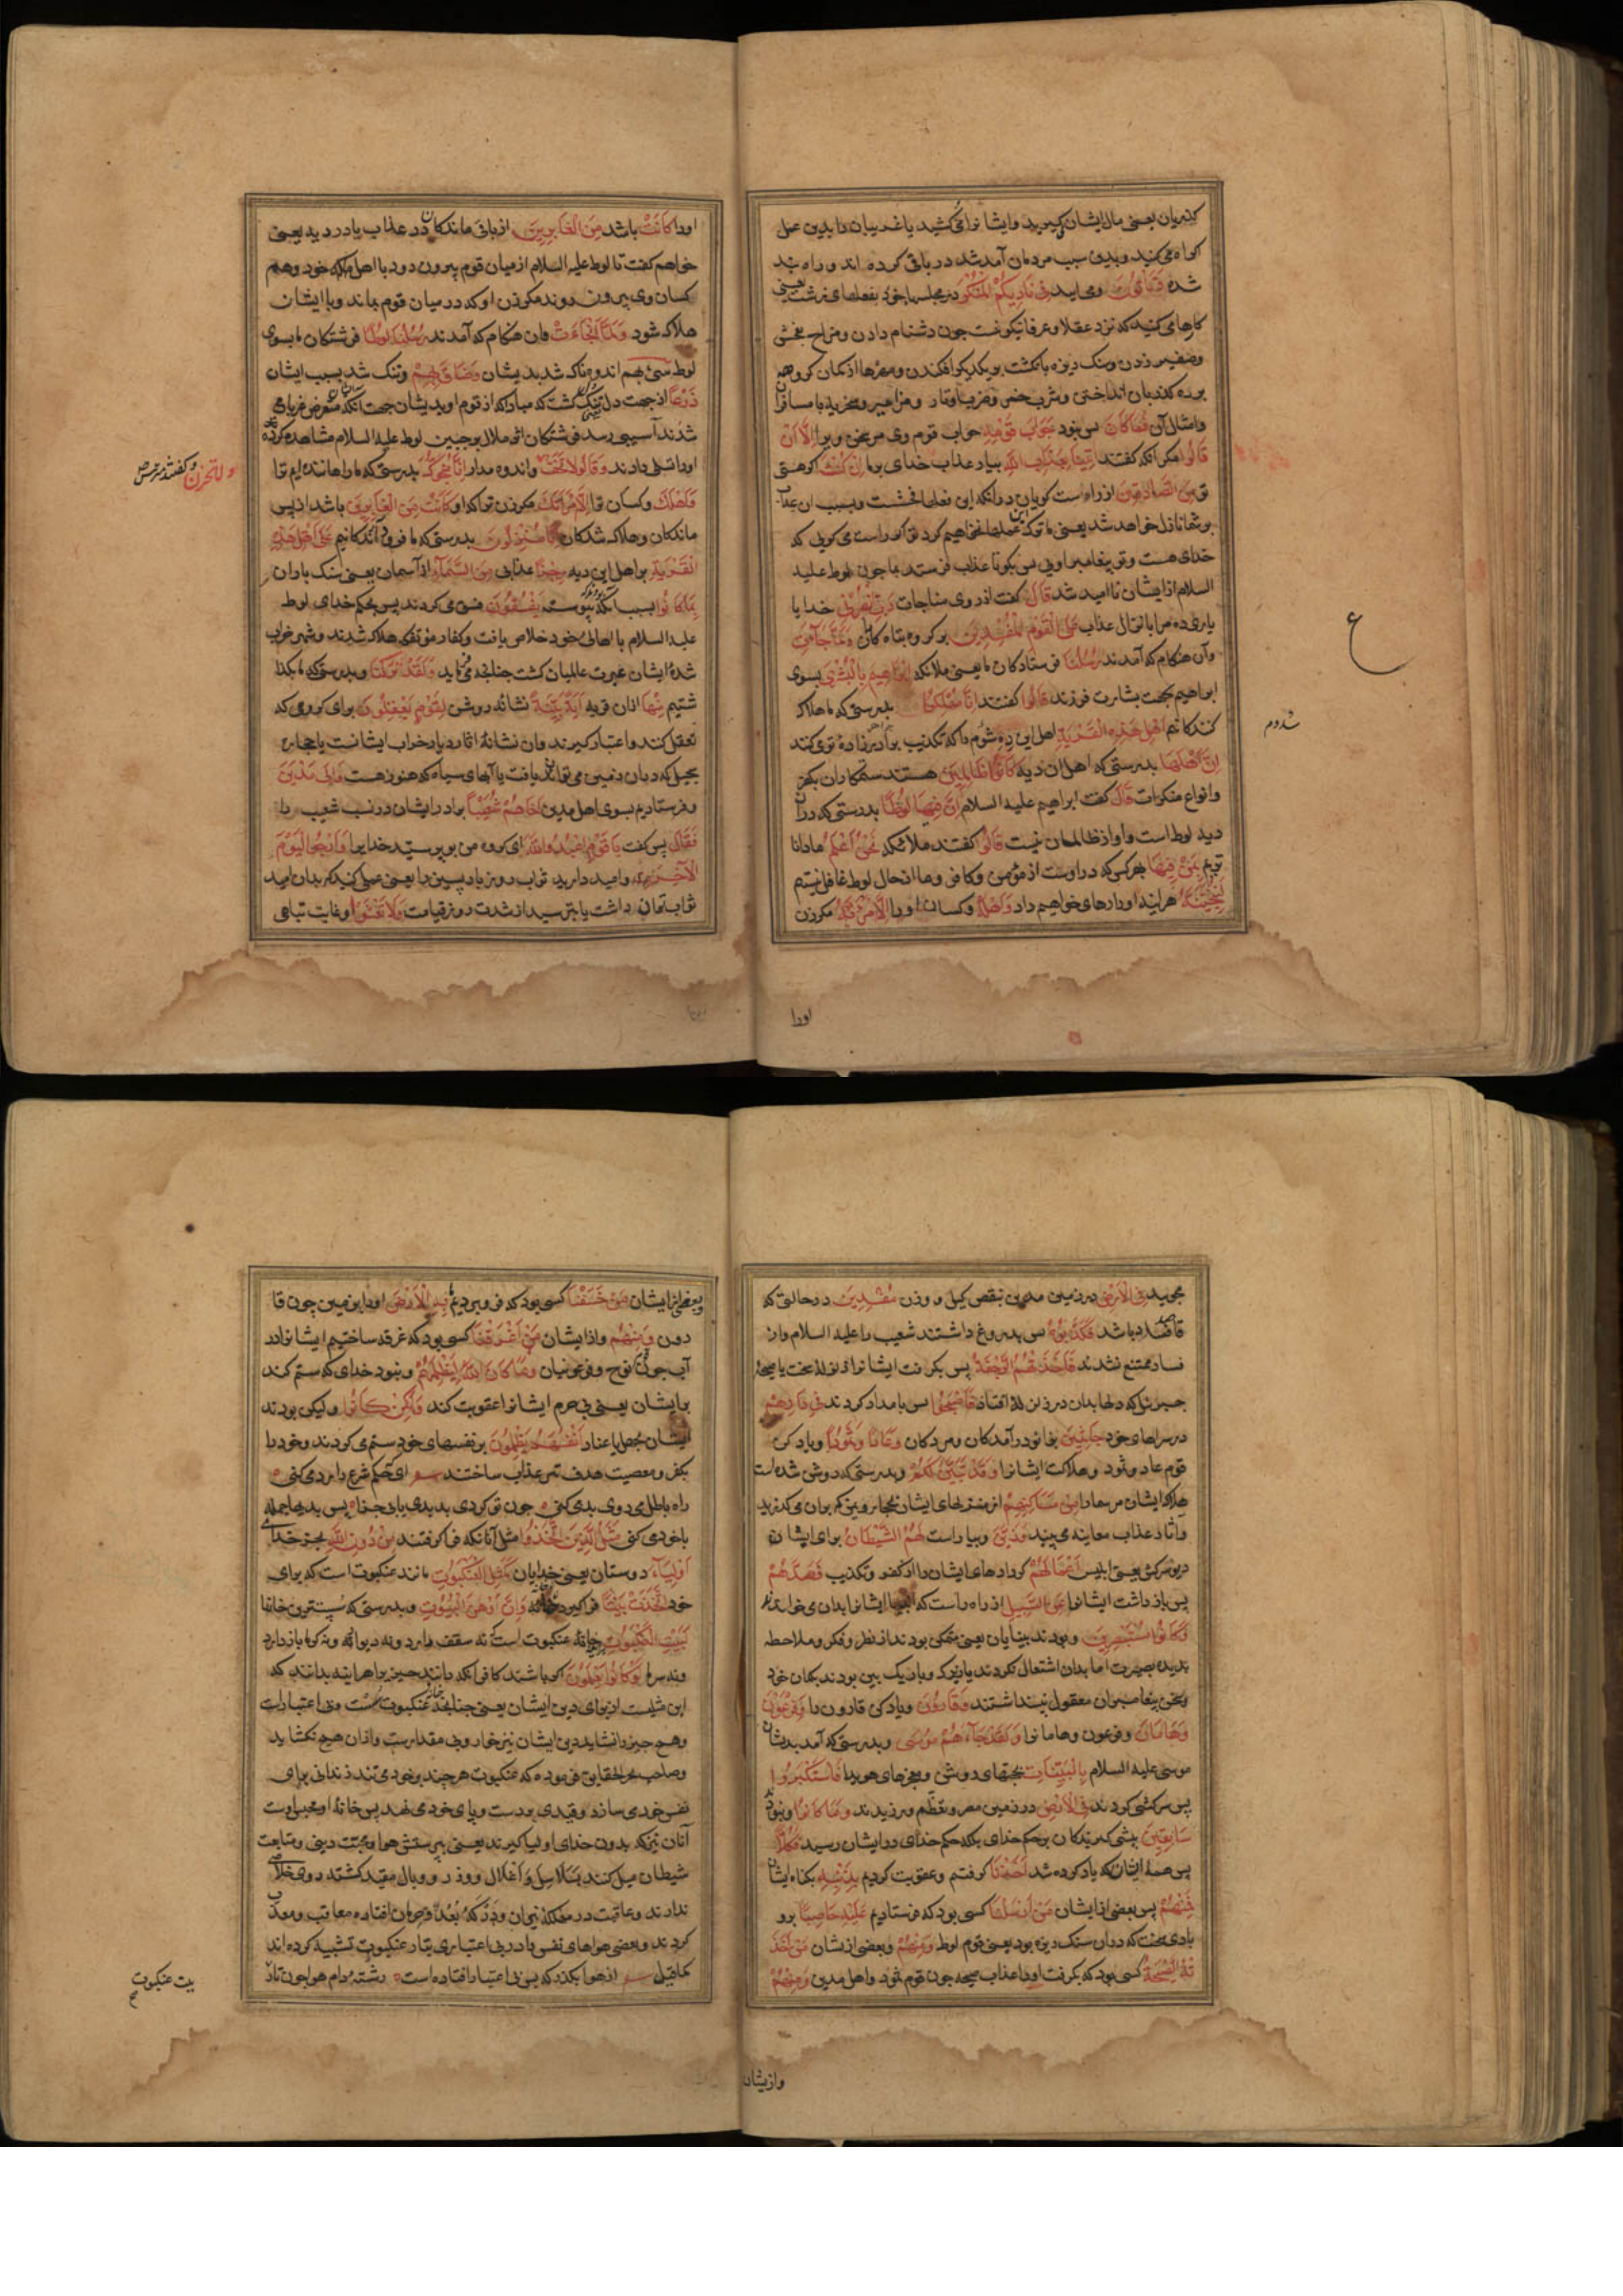 کذریان یعنی مال ایشان میبرید وایشانرا می کشید یا غریبان را بدین عمل
اکراه می کنید وبدین سبب مردمان آمد شد در باقی کرده اند وراه بند
شده وَتَأْتُونَ ومی آیید فِی نَادِیکُمُ الْمُنْکَرَ در مجلسها خود بفعلهای زشت یعنی
کارها می کنید که نزد عقلا وعرفا نیکو نیست چون دشنام دادن ومزاح بخش
وصفیر زدن وسنک ریزه بانکشت بر یکدیکر افکندن
وامثال آن فَمَا کَانَ پس نبود جَوَابَ قَوْمِهِ جواب قوم وی مر سخن ویرا اِلَّا اَنْ
قَالُوا مکر آنکه کفتند ائْتِنَا بِعَذَابِ اللّٰهِ بیار عذاب خدای برما اِنْ کُنْتَ اکر هستی
تو مِنَ الصَّادِقِینَ از راست کویان در آنکه این فعلها فحشست وبسبب آن عذاب
بر شما نازل خواهد شد یعنی ما ترک این عملها نخواهیم کرد تو اکر راست می کویی که
خدای هست وتو پیغامبر اویی پس بکو تا عذاب فرستد بما چون لوط علیه
السلام از ایشان ناامید شد قَالَ کفت از روی مناجات رَبِّ انْصُرْنِی خدایا
یاری ده مرا بانزال عذاب عَلَی الْقَوْمِ الْمُفْسِدِینَ بر کروه تباه کاران وَلَمَّا جَاءَتْ
وآن هنکام که آمدند رُسُلُنَا فرستادکان ما یعنی ملائکه اِبْرَاهِیمَ بِالْبُشْرَی بسوی
ابراهیم بجهت بشارت فرزند قَالُوا کفتند اِنَّا مُهْلِکُوا بدرستی که ما هلاک
کنندکانیم اَهْلِ هٰذِهِ الْقَرْیَةِ اهل این ده سدوم را که تکذیب برادرزادهٔ تو می کنند
اِنَّ اَهْلَهَا بدرستی که اهل آن دیه کَانُوا ظَالِمِینَ هستند ستمکاران بکفر
وانواع منکرات قَالَ کفت ابراهیم علیه السلام اِنَّ فِیهَا لُوطًا بدرستی که در آن
دیه لوط است واو از ظالمان نیست قَالُوا کفتند ملائکه نَحْنُ اَعْلَمُ ما دانا
تریم بِمَنْ فِیهَا بهر کس که در اوست از مؤمن وکافر وما از حال لوط غافل نیستیم
لَنُنَجِّیَنَّهُ هر آینه او را رهایی خواهیم داد وَاَهْلَهُ وکسان او را اِلَّا امْرَأَتَهُ مکر زن
سدوم
اورا
اورا کَانَتْ باشد مِنَ الْغَابِرِینَ از باقی ماندکان در عذاب یا در دیه یعنی
خواهم کفت تا لوط علیه السلام از میان قوم بیرون رود با اهل ملکه خود وهمه
کسان وی بیرون روند مکر زن او که در میان قوم بماند وبا ایشان
هلاک شود وَلَمَّا اَنْ جَاءَتْ وآن هنکام که آمدند رُسُلُنَا لُوطًا فرشتکان ما بسوی
لوط سِیءَ بِهِمْ اندوهناک شد بدیشان وَضَاقَ بِهِمْ وتنک شد بسبب ایشان
ذَرْعًا از جهت دل تنک کشت که مبادا که از قوم او بدیشان جهت آنکه متعرض غربا می
شدند آسیبی رسد فرشتکان اثر ملال بر جبین لوط علیه السلام مشاهده کرده
اورا تسلی دادند وَقَالُوا لَا تَخَفْ واندوه مدار اِنَّا مُنَجُّوکَ بدرستی که ما رهاننده ایم ترا
وَاَهْلَکَ وکسان ترا اِلَّا امْرَأَتَکَ مکر زن ترا که او کَانَتْ مِنَ الْغَابِرِینَ باشد از پس
ماندکان وهلاک شدکان اِنَّا مُنْزِلُونَ بدرستی که ما فرود آرندکانیم عَلَی اَهْلِ هٰذِهِ
الْقَرْیَةِ بر اهل این دیه رِجْزًا عذابی مِنَ السَّمَاءِ از آسمان یعنی سنک باران
بِمَا کَانُوا بسبب آنکه پیوسته یَفْسُقُونَ فسق می کردند پس بحکم خدای لوط
علیه السلام با اهالی خود خلاص یافت وکفار مؤتفکه هلاک شدند وشهر خراب
شدهٔ ایشان عبرت عالمیان کشت چنانچه می فرماید وَلَقَدْ تَرَکْنَا وبدرستی که ما بکذا
شتیم مِنْهَا از آن قریه آیَةً بَیِّنَةً نشانهٔ روشن لِقَوْمٍ یَعْقِلُونَ برای کروهی که
تعقل کنند واعتبار کیرند وآن نشانهٔ آثار دیار خراب ایشانست یا حجاره
سجیل که در آن زمین می توان یافت یا آبهای سیاه که هنوز هست وَاِلَی مَدْیَنَ
وفرستادیم بسوی اهل مدین اَخَاهُمْ شُعَیْبًا برادر ایشان در نسب شعیب را
فَقَالَ پس کفت یَا قَوْمِ اعْبُدُوا اللّٰهَ ای کروه من بپرستید خدایرا وَارْجُوا الْیَوْمَ
الْآخِرَ وامید دارید ثواب روز باز پسین را یعنی عملی کنید که بدان امید
ثواب توان داشت یا بترسید از شدت روز قیامت وَلَا تَعْثَوْا وغایت تباهی
ولا تحزن وکفتند مترس
مجویید فِی الْاَرْضِ در زمین مدین بنقص کیل و وزن مُفْسِدِینَ در حالتی که
قاصد فساد باشد فَکَذَّبُوهُ پس بدروغ داشتند شعیب را علیه السلام واز
فساد ممتنع نشدند فَاَخَذَتْهُمُ الرَّجْفَةُ پس بکرفت ایشانرا از زلزلهٔ سخت یا صیحهٔ
جبرئیل که دلها بدان در زلزله افتاد فَاَصْبَحُوا پس بامداد کردند فِی دَارِهِمْ
در سراهای خود جَاثِمِینَ بزانو درآمدکان ومردکان وَعَادًا وَثَمُودَ ویاد کن
قوم عاد وثمود وهلاکت ایشانرا وَقَدْ تَبَیَّنَ لَکُمْ وبدرستی که روشن شده است
هلاک ایشان مر شما را مِنْ مَسَاکِنِهِمْ از منزلهای ایشان بحجاز ویمن که بر آن می کذرید
وآثار عذاب معاینه می بینید وَزَیَّنَ وبیاراست لَهُمُ الشَّیْطَانُ برای ایشان
دیو سرکش یعنی ابلیس اَعْمَالَهُمْ کردارهای ایشانرا از کفر وتکذیب فَصَدَّهُمْ
پس باز داشت ایشانرا عَنِ السَّبِیلِ از راه راست که انبیا ایشانرا بدان می خواندند
وَکَانُوا مُسْتَبْصِرِینَ وبودند بینایان یعنی متمکن بودند از نظر وفکر وملاحظه
بدیدهٔ بصیرت اما بدان اشتغال نکردند یا زیرک وباریک بین بودند بکمان خود
وسخن پیغامبران معقول نپنداشتند وَقَارُونَ ویاد کن قارون را وَفِرْعَوْنَ
وَهَامَانَ وفرعون وهامانرا وَلَقَدْ جَاءَهُمْ مُوسَی وبدرستی که آمد بدیشان
موسی علیه السلام بِالْبَیِّنَاتِ بحجتهای روشن ومعجزهای هویدا فَاسْتَکْبَرُوا
پس سرکشی کردند فِی الْاَرْضِ در زمین مصر وتعظم ورزیدند وَمَا کَانُوا ونبودند
سَابِقِینَ پیشی کیرندکان بر حکم خدای بلکه حکم خدای در ایشان رسید فَکُلًّا
پس همهٔ ایشان که یاد کرده شد اَخَذْنَا کرفتیم وعقوبت کردیم بِذَنْبِهِ بکناه ایشان
فَمِنْهُمْ پس بعضی از ایشان مَنْ اَرْسَلْنَا کسی بود که فرستادیم عَلَیْهِ حَاصِبًا برو
بادی سخت که در آن سنک ریزه بود یعنی قوم لوط وَمِنْهُمْ وبعضی از یشان مَنْ اَخَذَ
تْهُ الصَّیْحَةُ کسی بود که بکرفت اورا عذاب صیحه چون قوم ثمود واهل مدین وَمِنْهُمْ
وازیشان
وبعضی از ایشان مَنْ خَسَفْنَا کسی بود که فرو بردیم بِهِ الْاَرْضَ اورا بزمین چون قا
رون وَمِنْهُمْ واز ایشان مَنْ اَغْرَقْنَا کسی بود که غرقه ساختیم ایشانرا در
آب چون قوم نوح وفرعونیان وَمَا کَانَ اللّٰهُ لِیَظْلِمَهُمْ ونبود خدای که ستم کند
برایشان یعنی بی جرم ایشانرا عقوبت کند وَلٰکِنْ کَانُوا ولیکن بودند
ایشان بجهل یا عناد اَنْفُسَهُمْ یَظْلِمُونَ بر نفسهای خود ستم می کردند وخود را
بکفر ومعصیت هدف تیر عذاب ساختند ای که حکم شرع را رد می کنی
راه باطل می روی بد می کنی چون تو کردی بد بدی یابی جزا پس بدیها جمله
با خود می کنی مَثَلُ الَّذِینَ اتَّخَذُوا مثل آنانکه فرا کرفتند مِنْ دُونِ اللّٰهِ بجز خدای
اَوْلِیَاءَ دوستان یعنی خدایان کَمَثَلِ الْعَنْکَبُوتِ مانند عنکبوت است که برای
خود اتَّخَذَتْ بَیْتًا فرا کیرد خانه وَاِنَّ اَوْهَنَ الْبُیُوتِ وبدرستی که سست ترین خانها
لَبَیْتُ الْعَنْکَبُوتِ خانهٔ عنکبوت است که نه سقف دارد ونه دیوار نه ونه کرما باز دارد
ونه سرما لَوْ کَانُوا یَعْلَمُونَ اکر باشند کافران که دانند چیزیرا هر آینه بدانند که
این مثلیست از برای دین ایشان یعنی چنانچه خانهٔ عنکبوت سست وبی اعتبارست
وهیچ چیز را نشاید دین ایشان نیز خوار وبی مقدارست واز آن هیچ نکشاید
وصاحب بحر الحقایق فرموده که عنکبوت هر چند بر خود می تند زندانی برای
نفس خود می سازد وقیدی بر دست وپای خود می نهد پس خانهٔ او محبس اوست
آنان نیز که بدون خدای اولیا کیرند یعنی پرستش هوا ومحبت دینی ومتابعت
شیطان میل کنند بسلاسل واغلال ووزر ووبال مقید کشته روی خلاص
ندارند وعاقبت در مهلکهٔ نیران ودرکهٔ بعد وحرمان افتاده معاقب ومعذب
کردند وبعضی هواهای نفس را در بی اعتباری بتار عنکبوت تشبیه کرده اند
کما قیل از هوا بکذر که بس بی اعتبار افتاده است رشتهٔ دام هوا چون تار
بیت عنکبوت